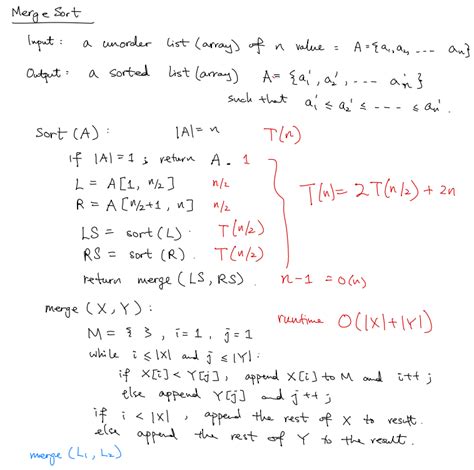 Merge Sort
Input : a unorder list (array) of n value = A={a₁,a₂, --- aₙ}
Output : a sorted list (array) A= {a₁', a₂', --- aₙ'}
such that a₁' ≤ a₂' ≤ --- ≤ aₙ'.
Sort (A) : |A|= n T(n)
if |A|=1 ; return A. 1
L = A[1, n/2] n/2
R = A[n/2+1, n] n/2
T(n)= 2T(n/2) + 2n
LS = sort (L). T(n/2)
RS = sort (R). T(n/2)
return merge (LS, RS). n-1 = O(n)
merge (X, Y) : runtime O(|X|+|Y|)
M = { }, i=1, j=1
while i ≤ |X| and j ≤ |Y| :
if X[i] < Y[j], append X[i] to M and i++ ;
else append Y[j] and j++ ;
if i < |X|, append the rest of X to result.
else append the rest of Y to the result.
merge (L₁, L₂)